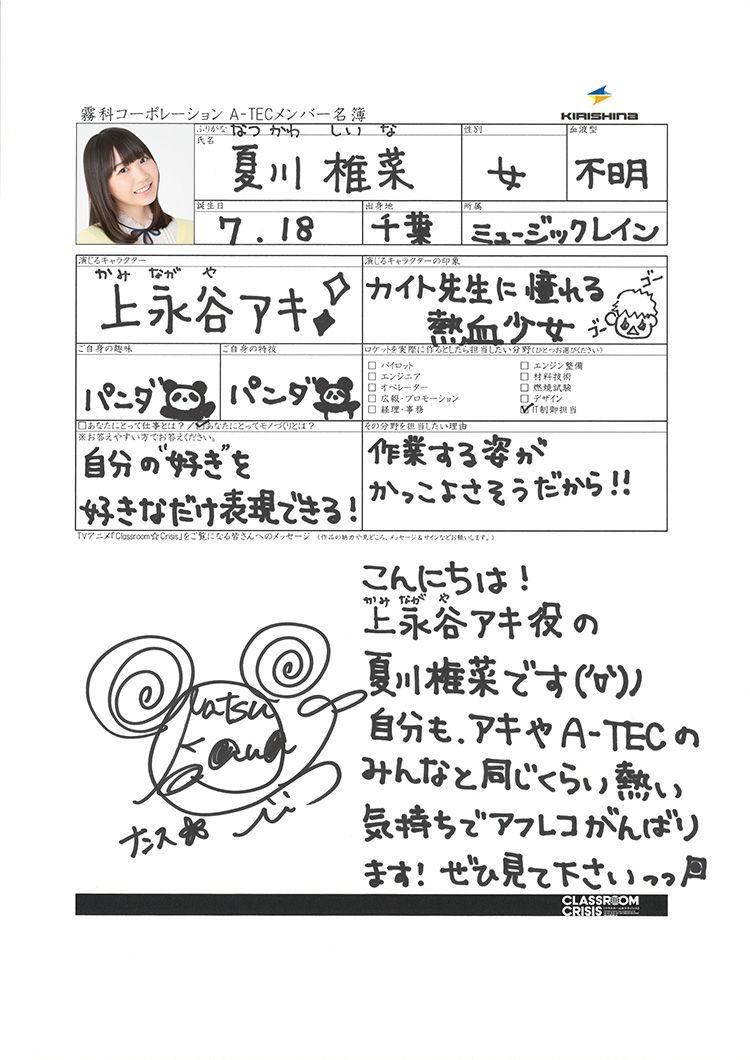 霧科コーポレーション A-TECメンバー名簿
KIRISHINA
ふりがな なつ かわ しい な
性別
血液型
氏名
夏川 椎菜
女
不明
誕生日
出身地
所属
7.18
千葉
ミュージックレイン
演じるキャラクター
演じるキャラクターの印象
かみ なが や
上永谷アキ
カイト先生に憧れる
熱血少女
ゴー
ゴー
ご自身の趣味
ご自身の特技
ロケットを実際に作るとしたら担当したい分野(ひとつお選びください)
パンダ
パンダ
□ パイロット
□ エンジン整備
□ エンジニア
□ 材料技術
□ オペレーター
□ 燃焼試験
□ 広報・プロモーション
□ デザイン
□ 経理・事務
☑ IT制御担当
□あなたにとって仕事とは?/☑あなたにとってモノづくりとは?
その分野を担当したい理由
※お答えやすい方でお答えください。
自分の"好き"を
好きなだけ表現できる!
作業する姿が
かっこよさそうだから!!
TVアニメ「Classroom☆Crisis」をご覧になる皆さんへのメッセージ (作品の魅力や見どころ、メッセージ&サインなどお願いします。)
こんにちは!
かみ なが や
上永谷アキ役の
夏川椎菜です('▽')ノ
自分も、アキやA-TECの
みんなと同じくらい熱い
気持ちでアフレコがんばり
ます! ぜひ見て下さいっっ
Natsu
kawa
ナンス
CLASSROOM
CRISIS